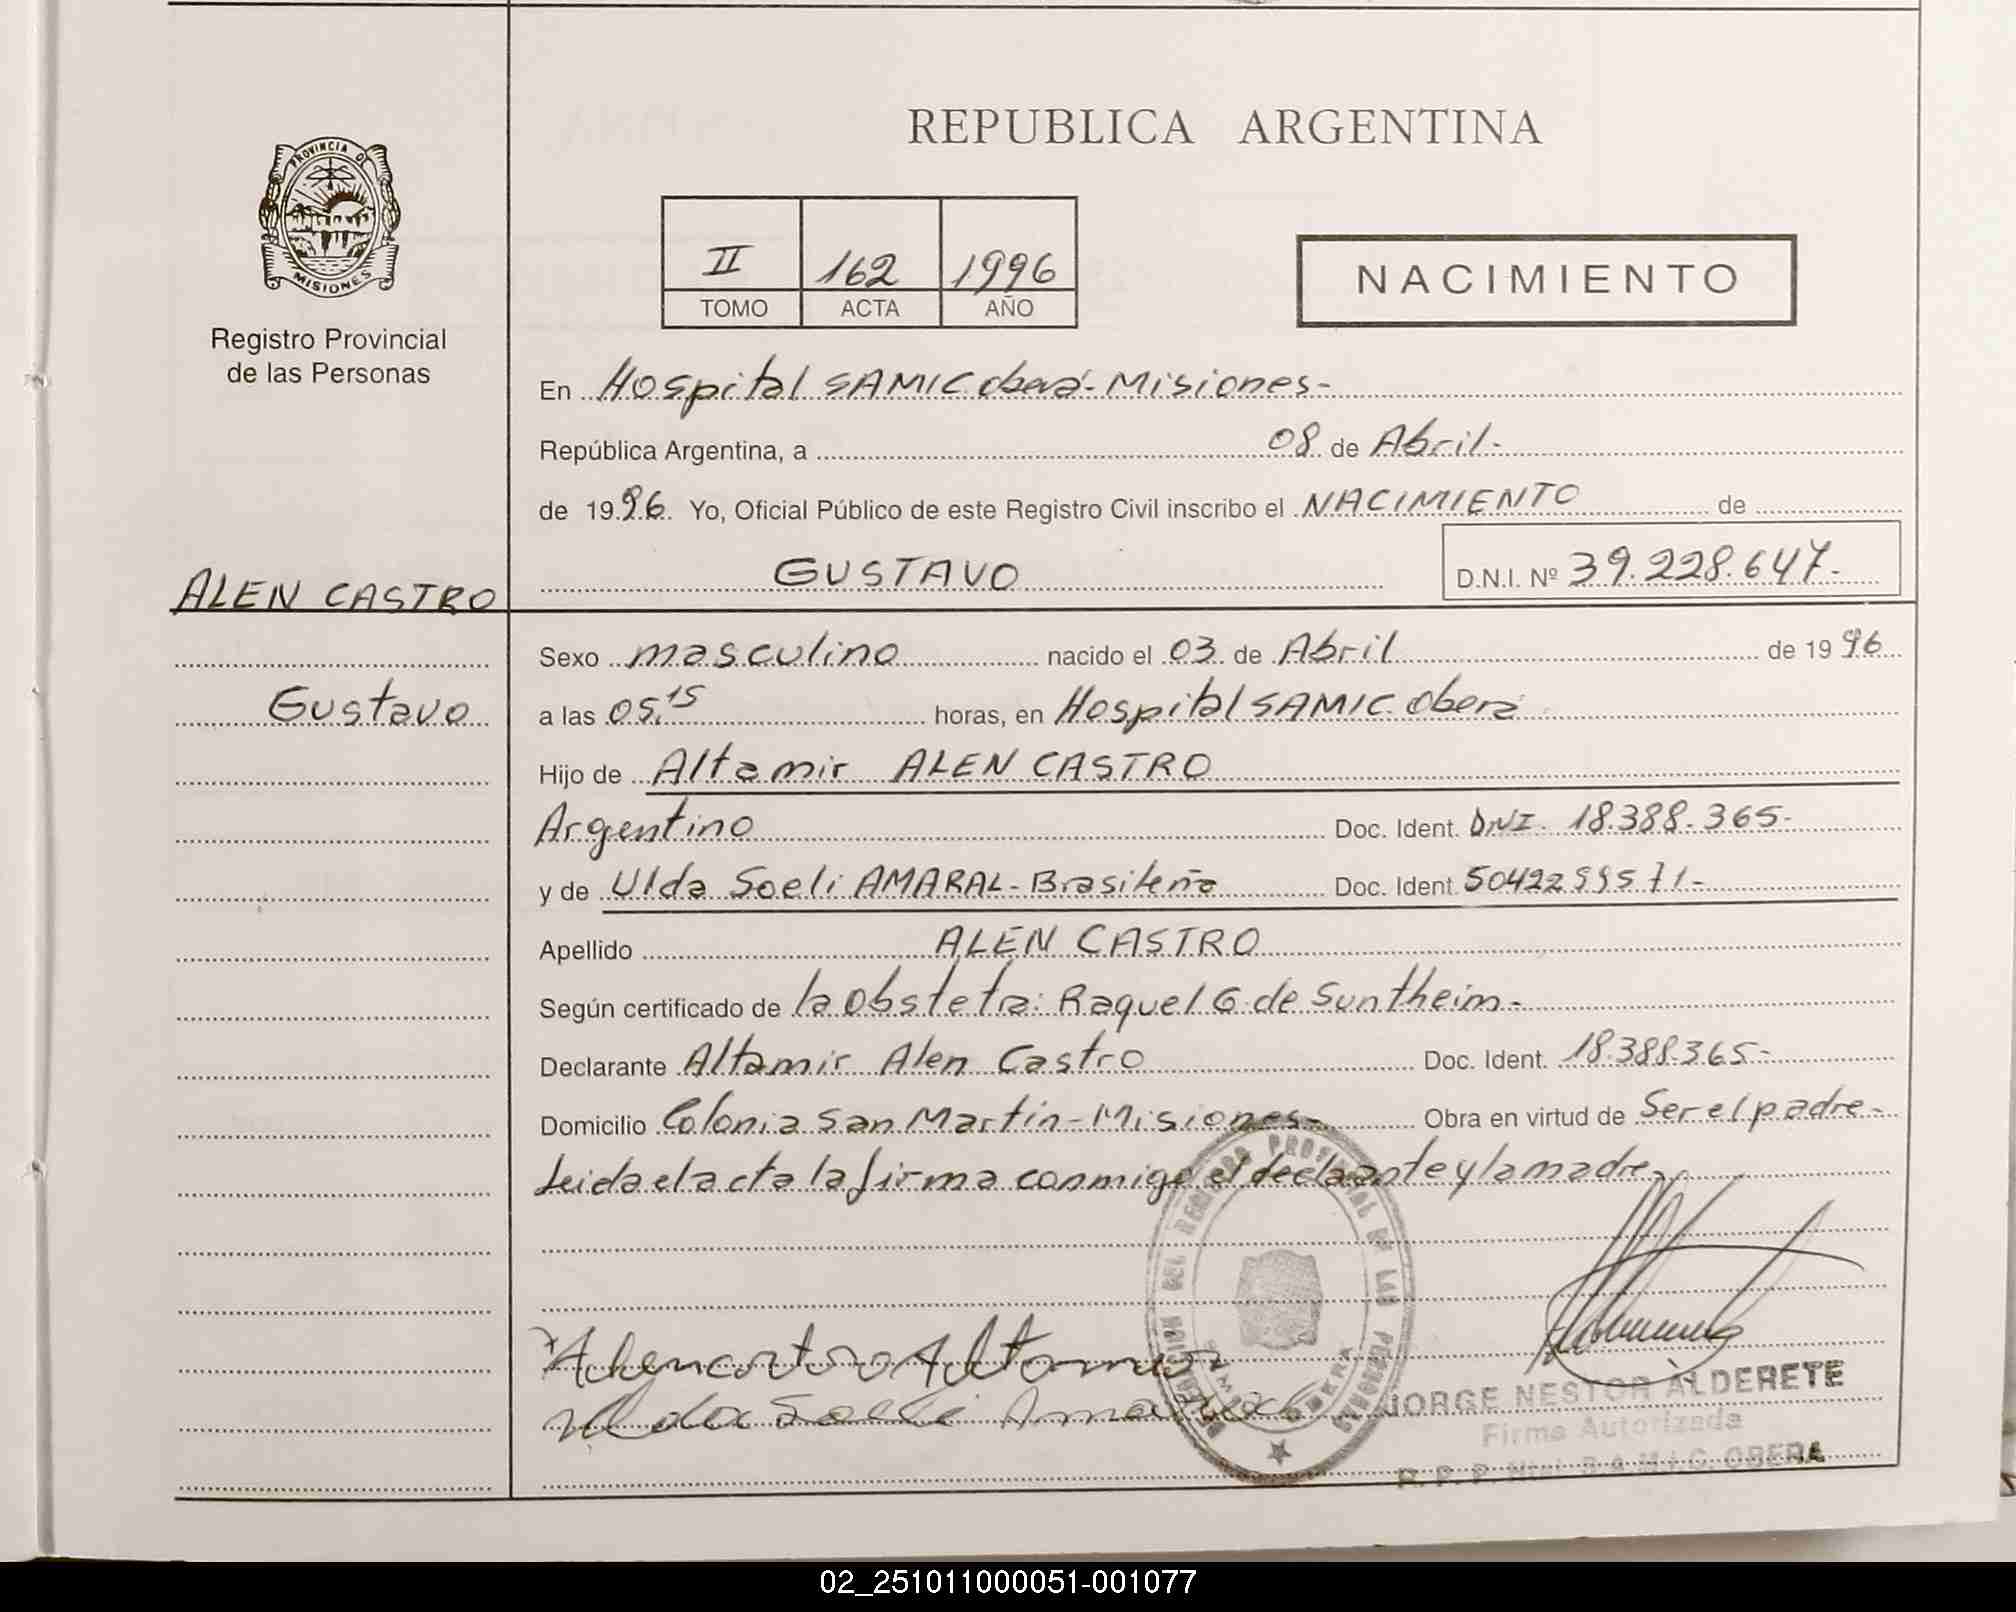 REPUBLICA ARGENTINA
PROVINCIA D
MISIONES
Registro Provincial
de las Personas
II 162 1996
TOMO ACTA AÑO
NACIMIENTO
En Hospital SAMIC Oberá - Misiones-
República Argentina, a 08 de Abril-
de 1996. Yo, Oficial Público de este Registro Civil inscribo el NACIMIENTO de
GUSTAVO D.N.I. Nº 39.228.647-
ALEN CASTRO
Sexo masculino nacido el 03 de Abril de 1996
Gustavo
a las 05,15 horas, en Hospital SAMIC Oberá
Hijo de Altamir ALEN CASTRO
Argentino Doc. Ident. DNI. 18.388.365-
y de Ulda Soeli AMARAL - Brasileña Doc. Ident.
Apellido ALEN CASTRO
Según certificado de la Obsteta: Raquel G. de Suntheim-
Declarante Altamir Alen Castro Doc. Ident. 18.388.365-
Domicilio Colonia San Martín - Misiones- Obra en virtud de Ser el padre-
Leida el acta la firma conmigo el declaante y la madre-
Alen castro Altamir
Ulda Soeli Amaral
JORGE NESTOR ALDERETE
Firma Autorizada
OBERA
02_251011000051-001077